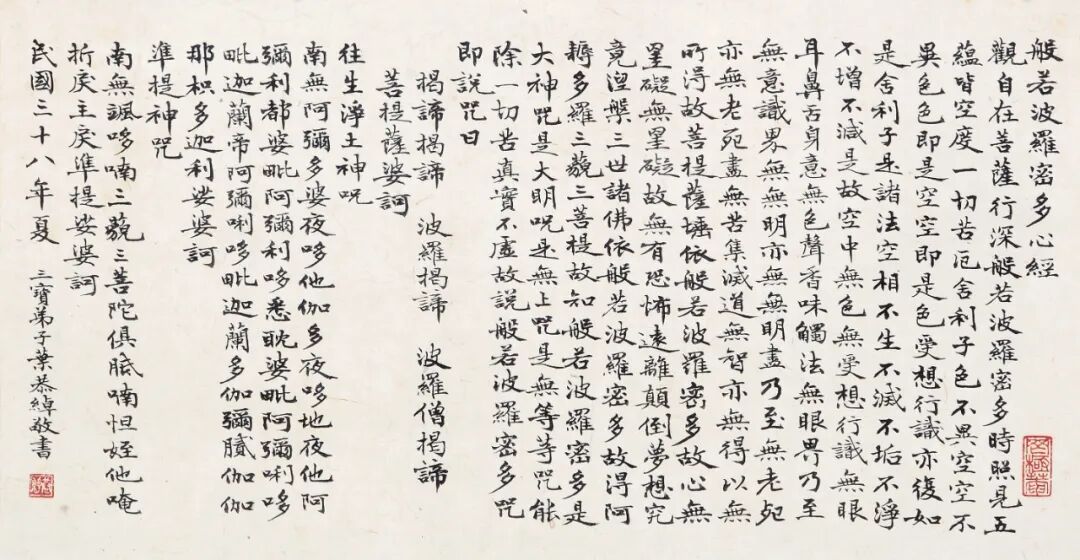 般若波羅密多心經
觀自在菩薩行深般若波羅密多時照見五
蘊皆空度一切苦厄舍利子色不異空空不
異色色即是空空即是色受想行識亦復如
是舍利子是諸法空相不生不滅不垢不淨
不增不減是故空中無色無受想行識無眼
耳鼻舌身意無色聲香味觸法無眼界乃至
無意識界無無明亦無無明盡乃至無老死
亦無老死盡無苦集滅道無智亦無得以無
所得故菩提薩埵依般若波羅密多故心無
罣礙無罣礙故無有恐怖遠離顛倒夢想究
竟涅槃三世諸佛依般若波羅密多故得阿
耨多羅三藐三菩提故知般若波羅密多是
大神咒是大明咒是無上咒是無等等咒能
除一切苦真實不虛故說般若波羅密多咒
即說咒曰
揭諦揭諦 波羅揭諦 波羅僧揭諦
菩提薩婆訶
往生淨土神呪
南無阿彌多婆夜哆他伽多夜哆地夜他阿
彌利都婆毗阿彌利哆悉耽婆毗阿彌唎哆
毗迦蘭帝阿彌唎哆毗迦蘭多伽彌膩伽伽
那枳多迦利娑婆訶
準提神咒
南無颯哆喃三藐三菩陀俱胝喃怛姪他唵
折戾主戾準提娑婆訶
民國三十八年夏 三寶弟子葉恭綽敬書